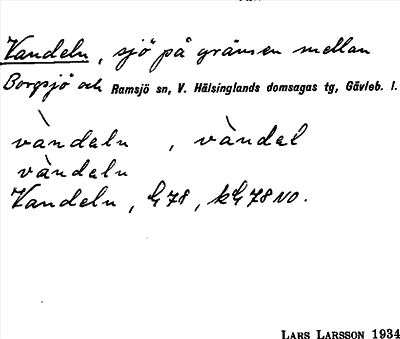 Vandeln, sjö på gränsen mellan
Borgsjö och Ramsjö sn, V. Hälsinglands domsagas tg, Gävleb. l.
vàndeln , vàndel
vàndeln
Vandeln, G 78, kG 78 NO.
LARS LARSSON 1934